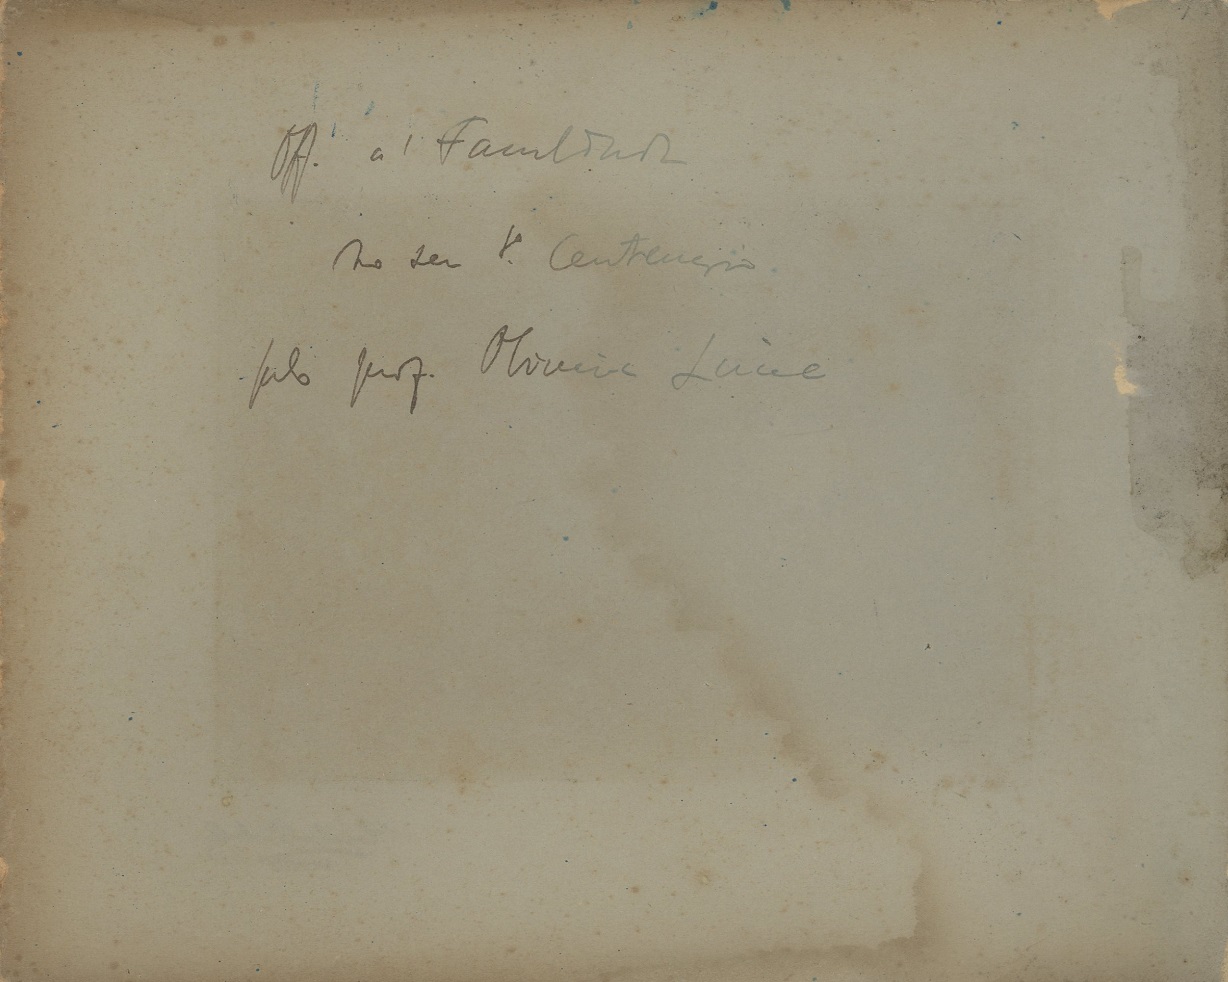 Off. a' Faculdade
no seu 1º. Centenario.
pelo prof. Oliveira Lima